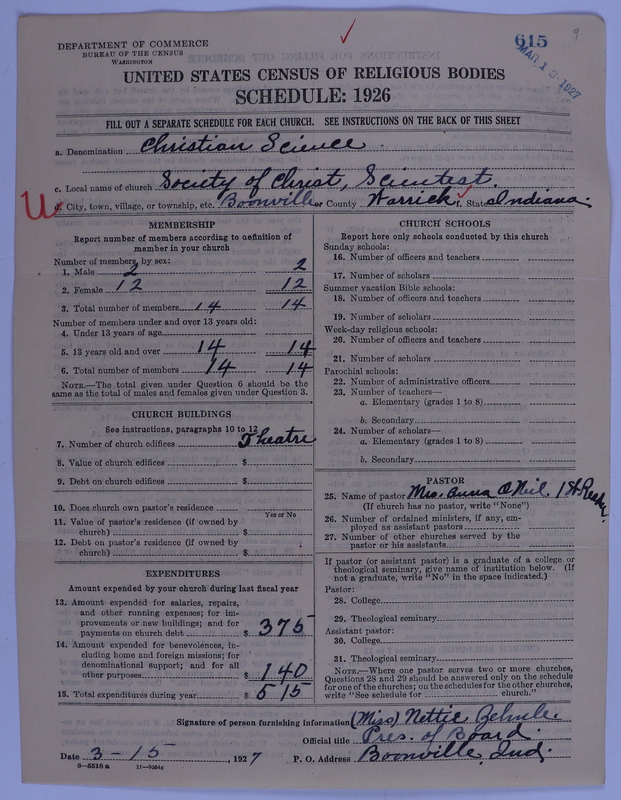 615
9
MAR 18 1927
DEPARTMENT OF COMMERCE
BUREAU OF THE CENSUS
WASHINGTON
UNITED STATES CENSUS OF RELIGIOUS BODIES
SCHEDULE: 1926
FILL OUT A SEPARATE SCHEDULE FOR EACH CHURCH. SEE INSTRUCTIONS ON THE BACK OF THIS SHEET
a. Denomination Christian Science
c. Local name of church Society of Christ, Scientest.
City, town, village, or township, etc. Boonville or County Warrick f. State Indiana.
MEMBERSHIP
Report number of members according to definition of
member in your church
Number of members, by sex:
1. Male 2 2
2. Female 12 12
3. Total number of members 14 14
Number of members under and over 13 years old:
4. Under 13 years of age
5. 13 years old and over 14 14
6. Total number of members 14 14
NOTE.—The total given under Question 6 should be the
same as the total of males and females given under Question 3.
CHURCH BUILDINGS
See instructions, paragraphs 10 to 12
7. Number of church edifices Theatre
8. Value of church edifices $
9. Debt on church edifices $
10. Does church own pastor's residence
Yes or No
11. Value of pastor's residence (if owned by
church) $
12. Debt on pastor's residence (if owned by
church) $
EXPENDITURES
Amount expended by your church during last fiscal year
13. Amount expended for salaries, repairs,
and other running expenses; for im-
provements or new buildings; and for
payments on church debt $ 375
14. Amount expended for benevolences, in-
cluding home and foreign missions; for
denominational support; and for all
other purposes $ 140
15. Total expenditures during year $ 515
CHURCH SCHOOLS
Report here only schools conducted by this church
Sunday schools:
16. Number of officers and teachers
17. Number of scholars
Summer vacation Bible schools:
18. Number of officers and teachers
19. Number of scholars
Week-day religious schools:
20. Number of officers and teachers
21. Number of scholars
Parochial schools:
22. Number of administrative officers
23. Number of teachers—
a. Elementary (grades 1 to 8)
b. Secondary
24. Number of scholars—
a. Elementary (grades 1 to 8)
b. Secondary
PASTOR
25. Name of pastor Mrs. Anna O'Neil 1st Reader
(If church has no pastor, write "None")
26. Number of ordained ministers, if any, em-
ployed as assistant pastors
27. Number of other churches served by the
pastor or his assistants
If pastor (or assistant pastor) is a graduate of a college or
theological seminary, give name of institution below. (If
not a graduate, write "No" in the space indicated.)
Pastor:
28. College
29. Theological seminary
Assistant pastor:
30. College
31. Theological seminary
NOTE.—Where one pastor serves two or more churches,
Questions 28 and 29 should be answered only on the schedule
for one of the churches; on the schedules for the other churches,
write "See schedule for church."
Signature of person furnishing information (Miss) Nettie
Official title Pres. of Board
Date 3-15, 1927 P. O. Address Boonville, Ind.
8—5518 a 11—9054a